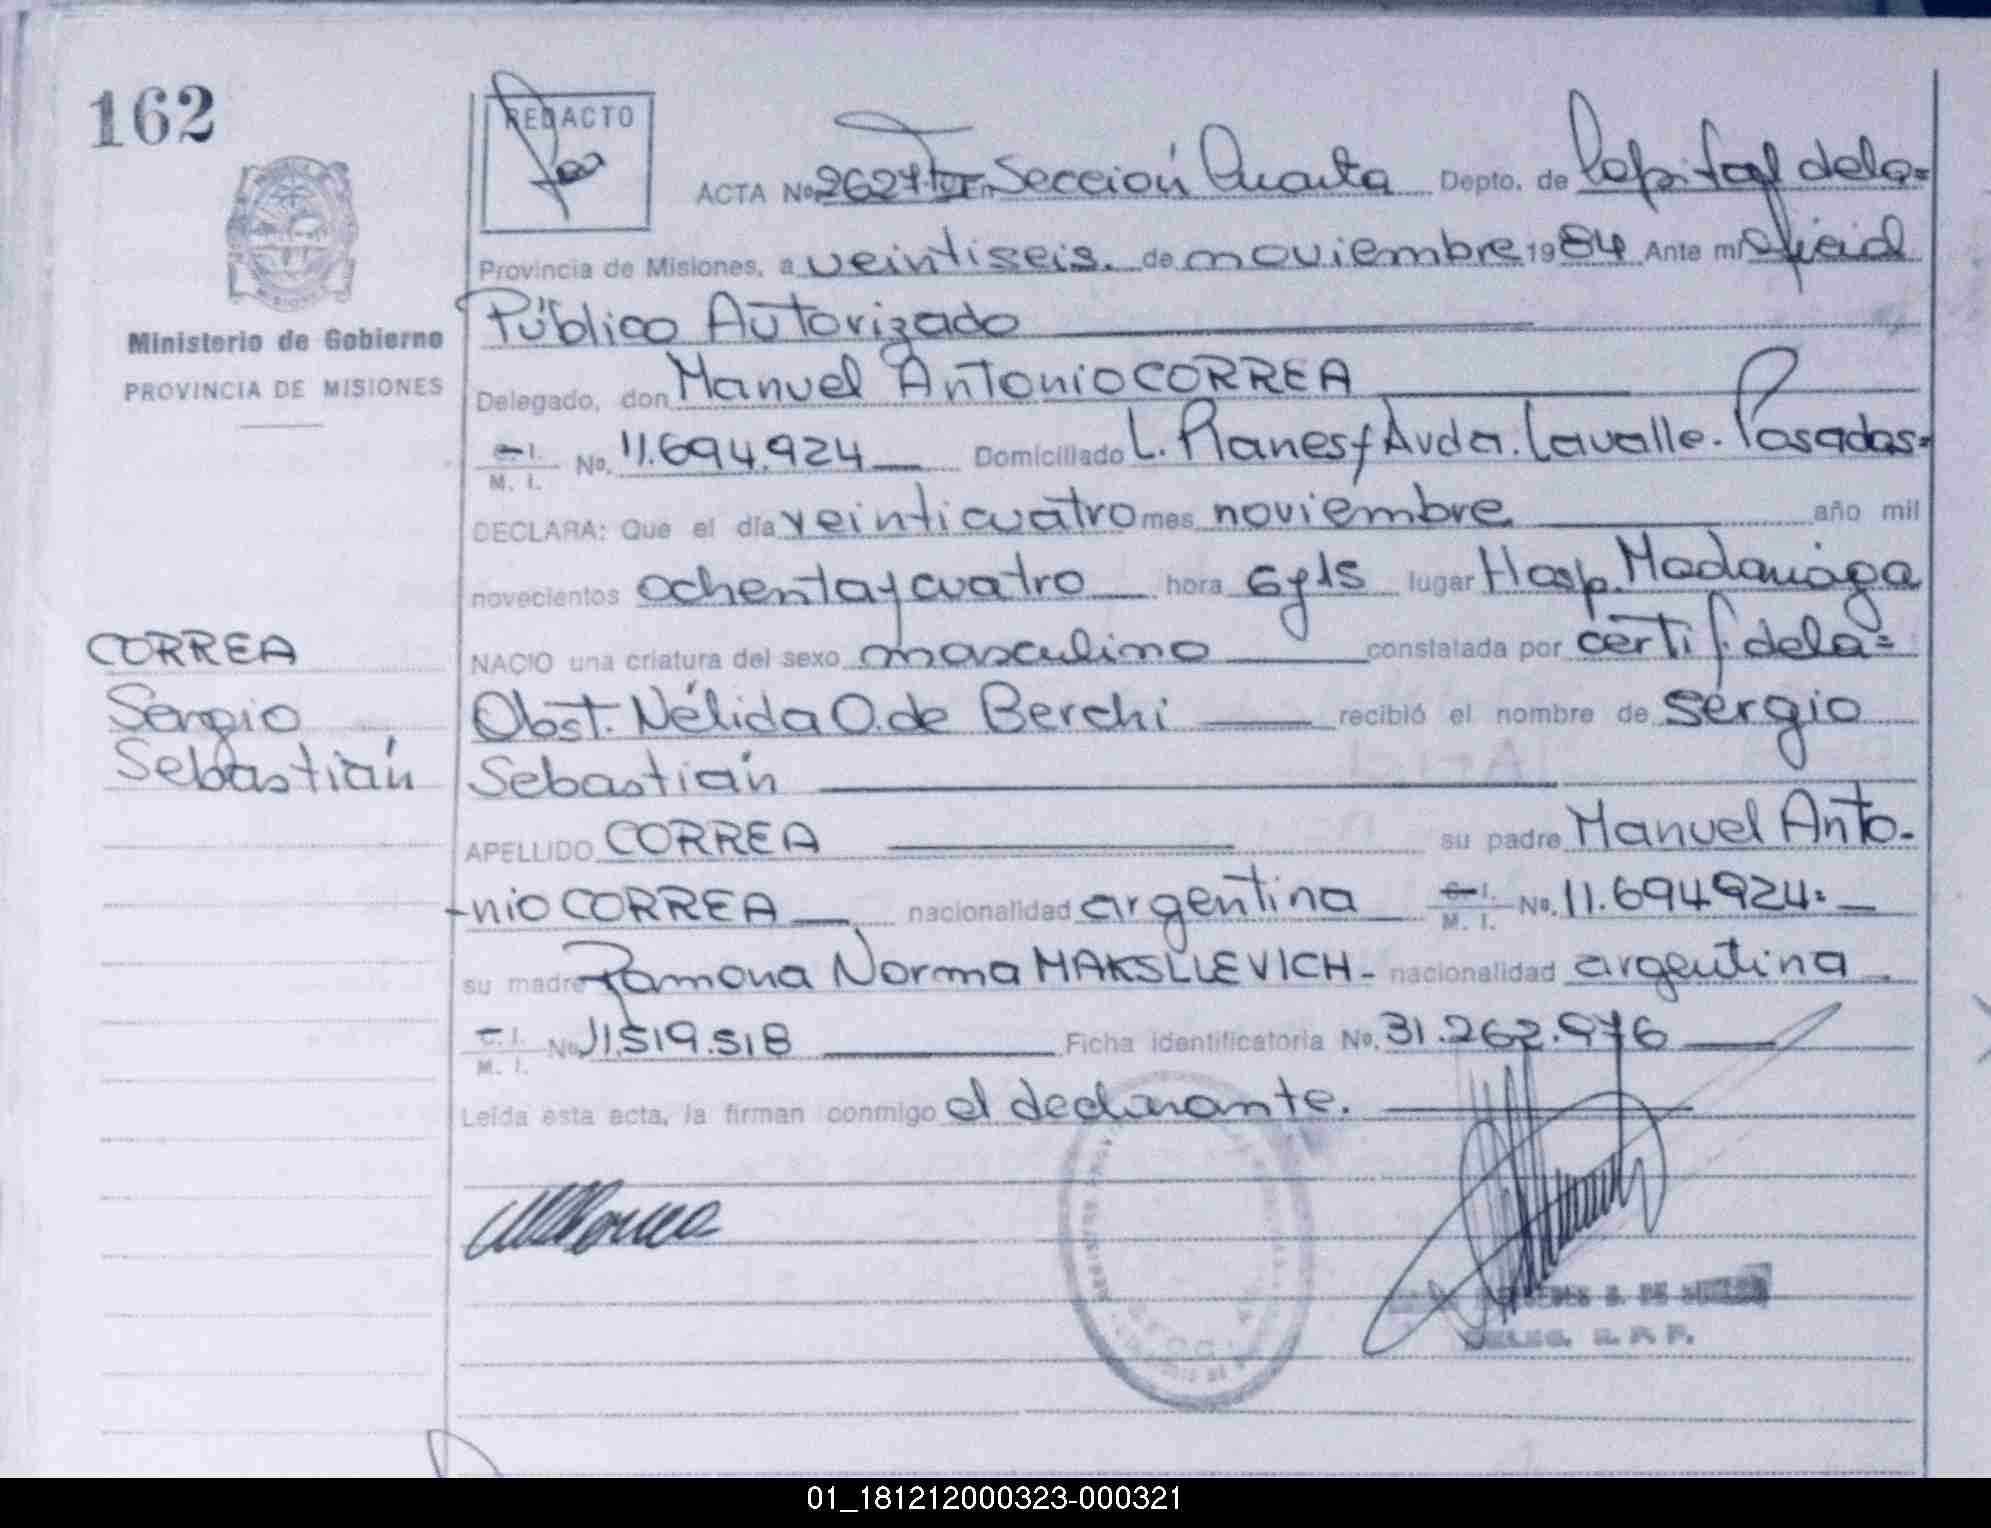 162
REDACTO
ACTA No. 2627 Tº II En Sección Cuarta Depto. de Capital de la=
Provincia de Misiones, a veintiseis. de noviembre 1984 Ante mi Oficial
Público Autorizado
Ministerio de Gobierno
PROVINCIA DE MISIONES
Delegado, don Manuel Antonio CORREA
C. I. M. I. No. 11.694.924 Domiciliado L. Planes y Avda. Lavalle. Posadas=
DECLARA: Que el día veinticuatro mes noviembre año mil
novecientos ochenta y cuatro hora 6 y 15 lugar Hosp. Madariaga
NACIO una criatura del sexo masculino constatada por certif. de la=
Obst. Nélida O. de Berchi recibió el nombre de Sergio
Sebastián
CORREA
Sergio
Sebastián
APELLIDO CORREA su padre Manuel Anto-
-nio CORREA nacionalidad argentina C. I. M. I. No. 11.694.924=
su madre Ramona Norma MAKSLLEVICH- nacionalidad argentina
C. I. M. I. No. 11.519.518 Ficha identificatoria No. 31.262.976
Leída esta acta, la firman conmigo el declarante.
DELEG. R. P. P.
01_181212000323-000321